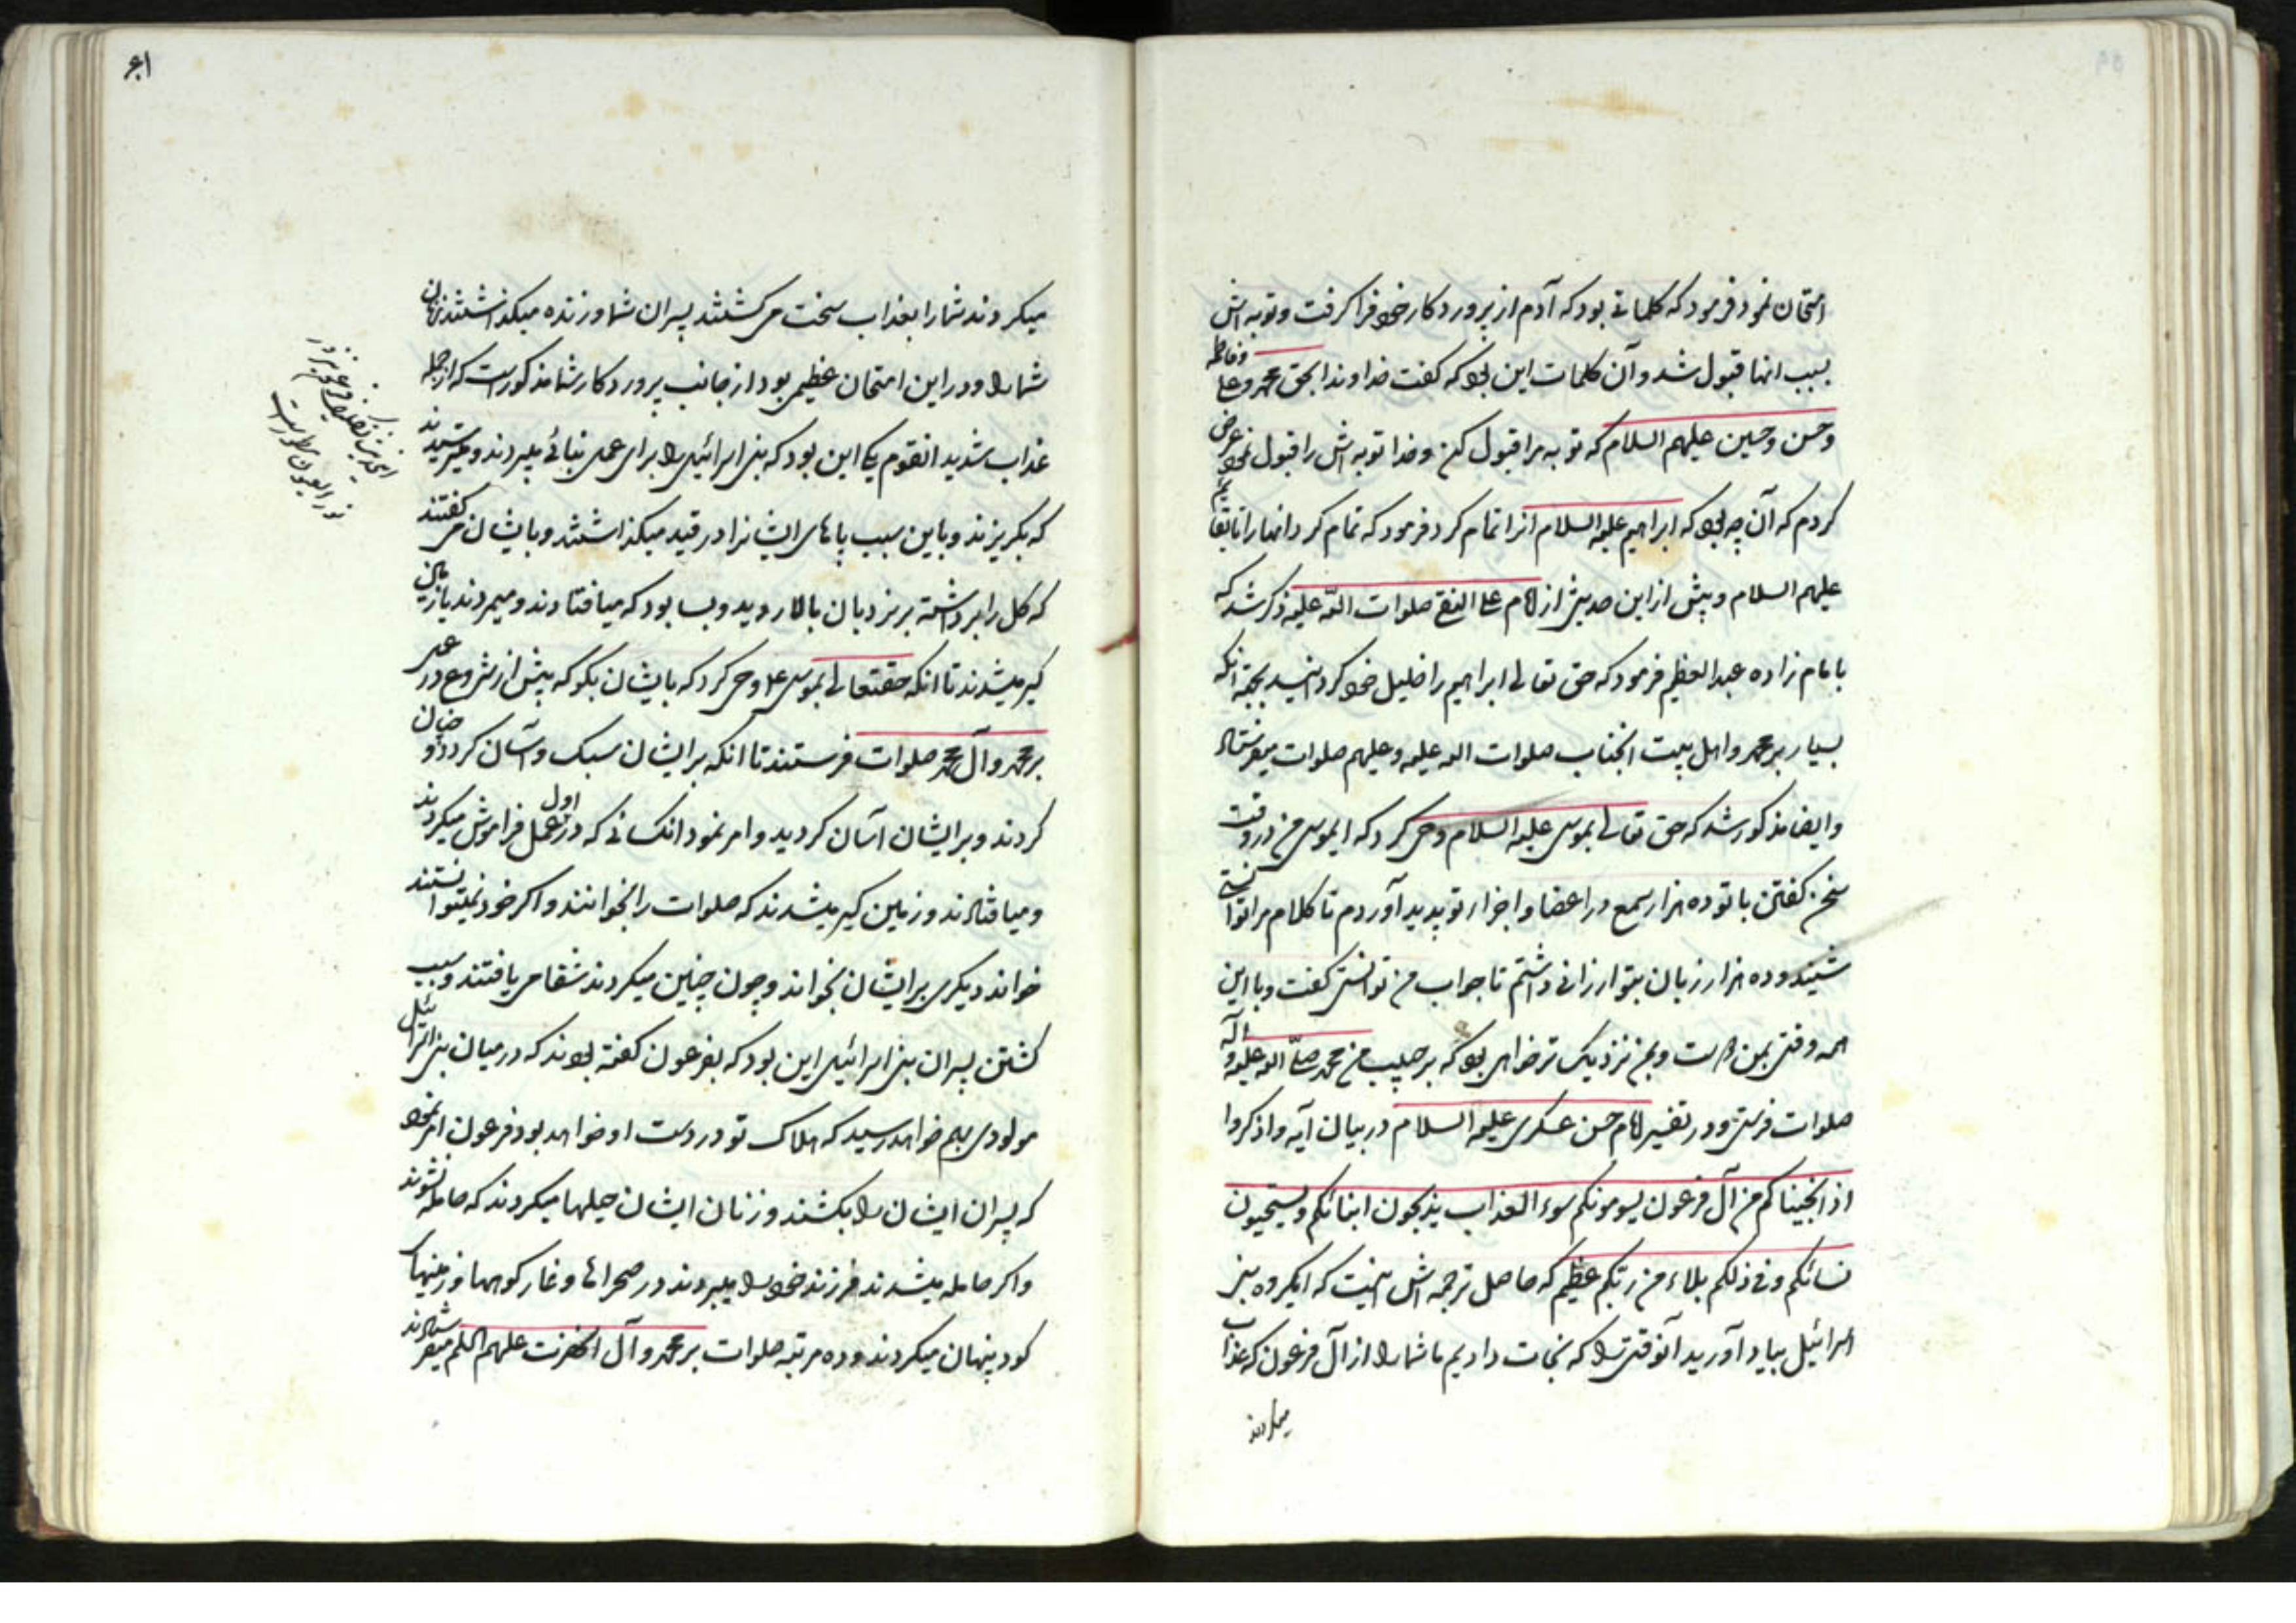 امتحان نمود فرمود که کلماتی بود که آدم از پروردکار خود فرا کرفت و توبه اش
بسبب انها قبول شد و آن کلمات این بود که کفت خداوندا بحق محمد و علی و فاطمه
و حسن و حسین علیهم السلام که توبه مرا قبول کن و خدا توبه اش را قبول نمود عرض
کردم که آن چه بود که ابراهیم علیه السلام انرا تمام کرد فرمود که تمام کرد انها را تا بقائم
علیهم السلام و پیش از این حدیثی از امام علی النقی صلوات الله علیه ذکر شد که
بامام زاده عبدالعظیم فرمود که حق تعالی ابراهیم را خلیل خود کردانید بجهة انکه
بسیار بر محمد و اهل بیت انجناب صلوات الله علیه و علیهم صلوات میفرستاد
و ایضا مذکور شد که حق تعالی بموسی علیه السلام وحی کرد که ایموسی من در وقت
سخن کفتن با تو ده هزار سمع در اعضا و اجزاء تو پدید آوردم تا کلام مرا توانستی
شنید و ده هزار زبان بتو ارزانی داشتم تا جواب من توانستی کفت و با این
همه وقتی بمن دوست و بمن نزدیک تر خواهی بود که بر حبیب من محمد صلی الله علیه و آله
صلوات فرستی و در تفسیر امام حسن عسکری علیه السلام در بیان آیه و اذکروا
اذ انجیناکم من آل فرعون یسومونکم سوء العذاب یذبحون ابنائکم و یستحیون
نسائکم و فی ذلکم بلاء من ربکم عظیم که حاصل ترجمه اش اینست که ایکروه بنی
اسرائیل بیاد آورید آنوقتی را که نجات دادیم ما شما را از آل فرعون که عذاب
میکردند
۶۱
میکردند شما را بعذاب سخت می کشتند پسران شما و زنده میکذاشتند زنان
شما را و در این امتحان عظیمی بود از جانب پروردکار شما مذکور است که از جمله
عذاب شدید انقوم یکی این بود که بنی اسرائیل را برای عمل بنائی میبردند و میترسیدند
که بکریزند و باین سبب پاهای ایشانرا در قید میکذاشتند و بایشان می کفتند
که کل را برداشته بر نردبان بالا روید و بسا بود که میافتادند و میمردند یا زمین
کیر میشدند تا انکه حقتعالی بموسی ع وحی کرد که بایشان بکو که پیش از شروع در عمل
بر محمد و آل محمد صلوات فرستند تا انکه بر ایشان سبک و آسان کردد و چنان
کردند و بر ایشان آسان کردید و امر نمود انکسانی که در اول عمل فراموش میکردند
و میافتادند و زمین کیر میشدند که صلوات را بخوانند و اکر خود نمیتوانستند
خواند دیکری بر ایشان بخواند و چون چنین میکردند شفا می یافتند و سبب
کشتن پسران بنی اسرائیل این بود که بفرعون کفته بودند که در میان بنی اسرائیل
مولودی بهم خواهد رسید که هلاک تو در دست او خواهد بود فرعون امر نمود
که پسران ایشان را بکشند و زنان ایشان حیلها میکردند که حامله نشوند
و اکر حامله میشدند فرزند خود را میبردند در صحراها و غار کوهها و زمینهای
کود پنهان میکردند و ده مرتبه صلوات بر محمد و آل انحضرت علیهم السلم میفرستادند